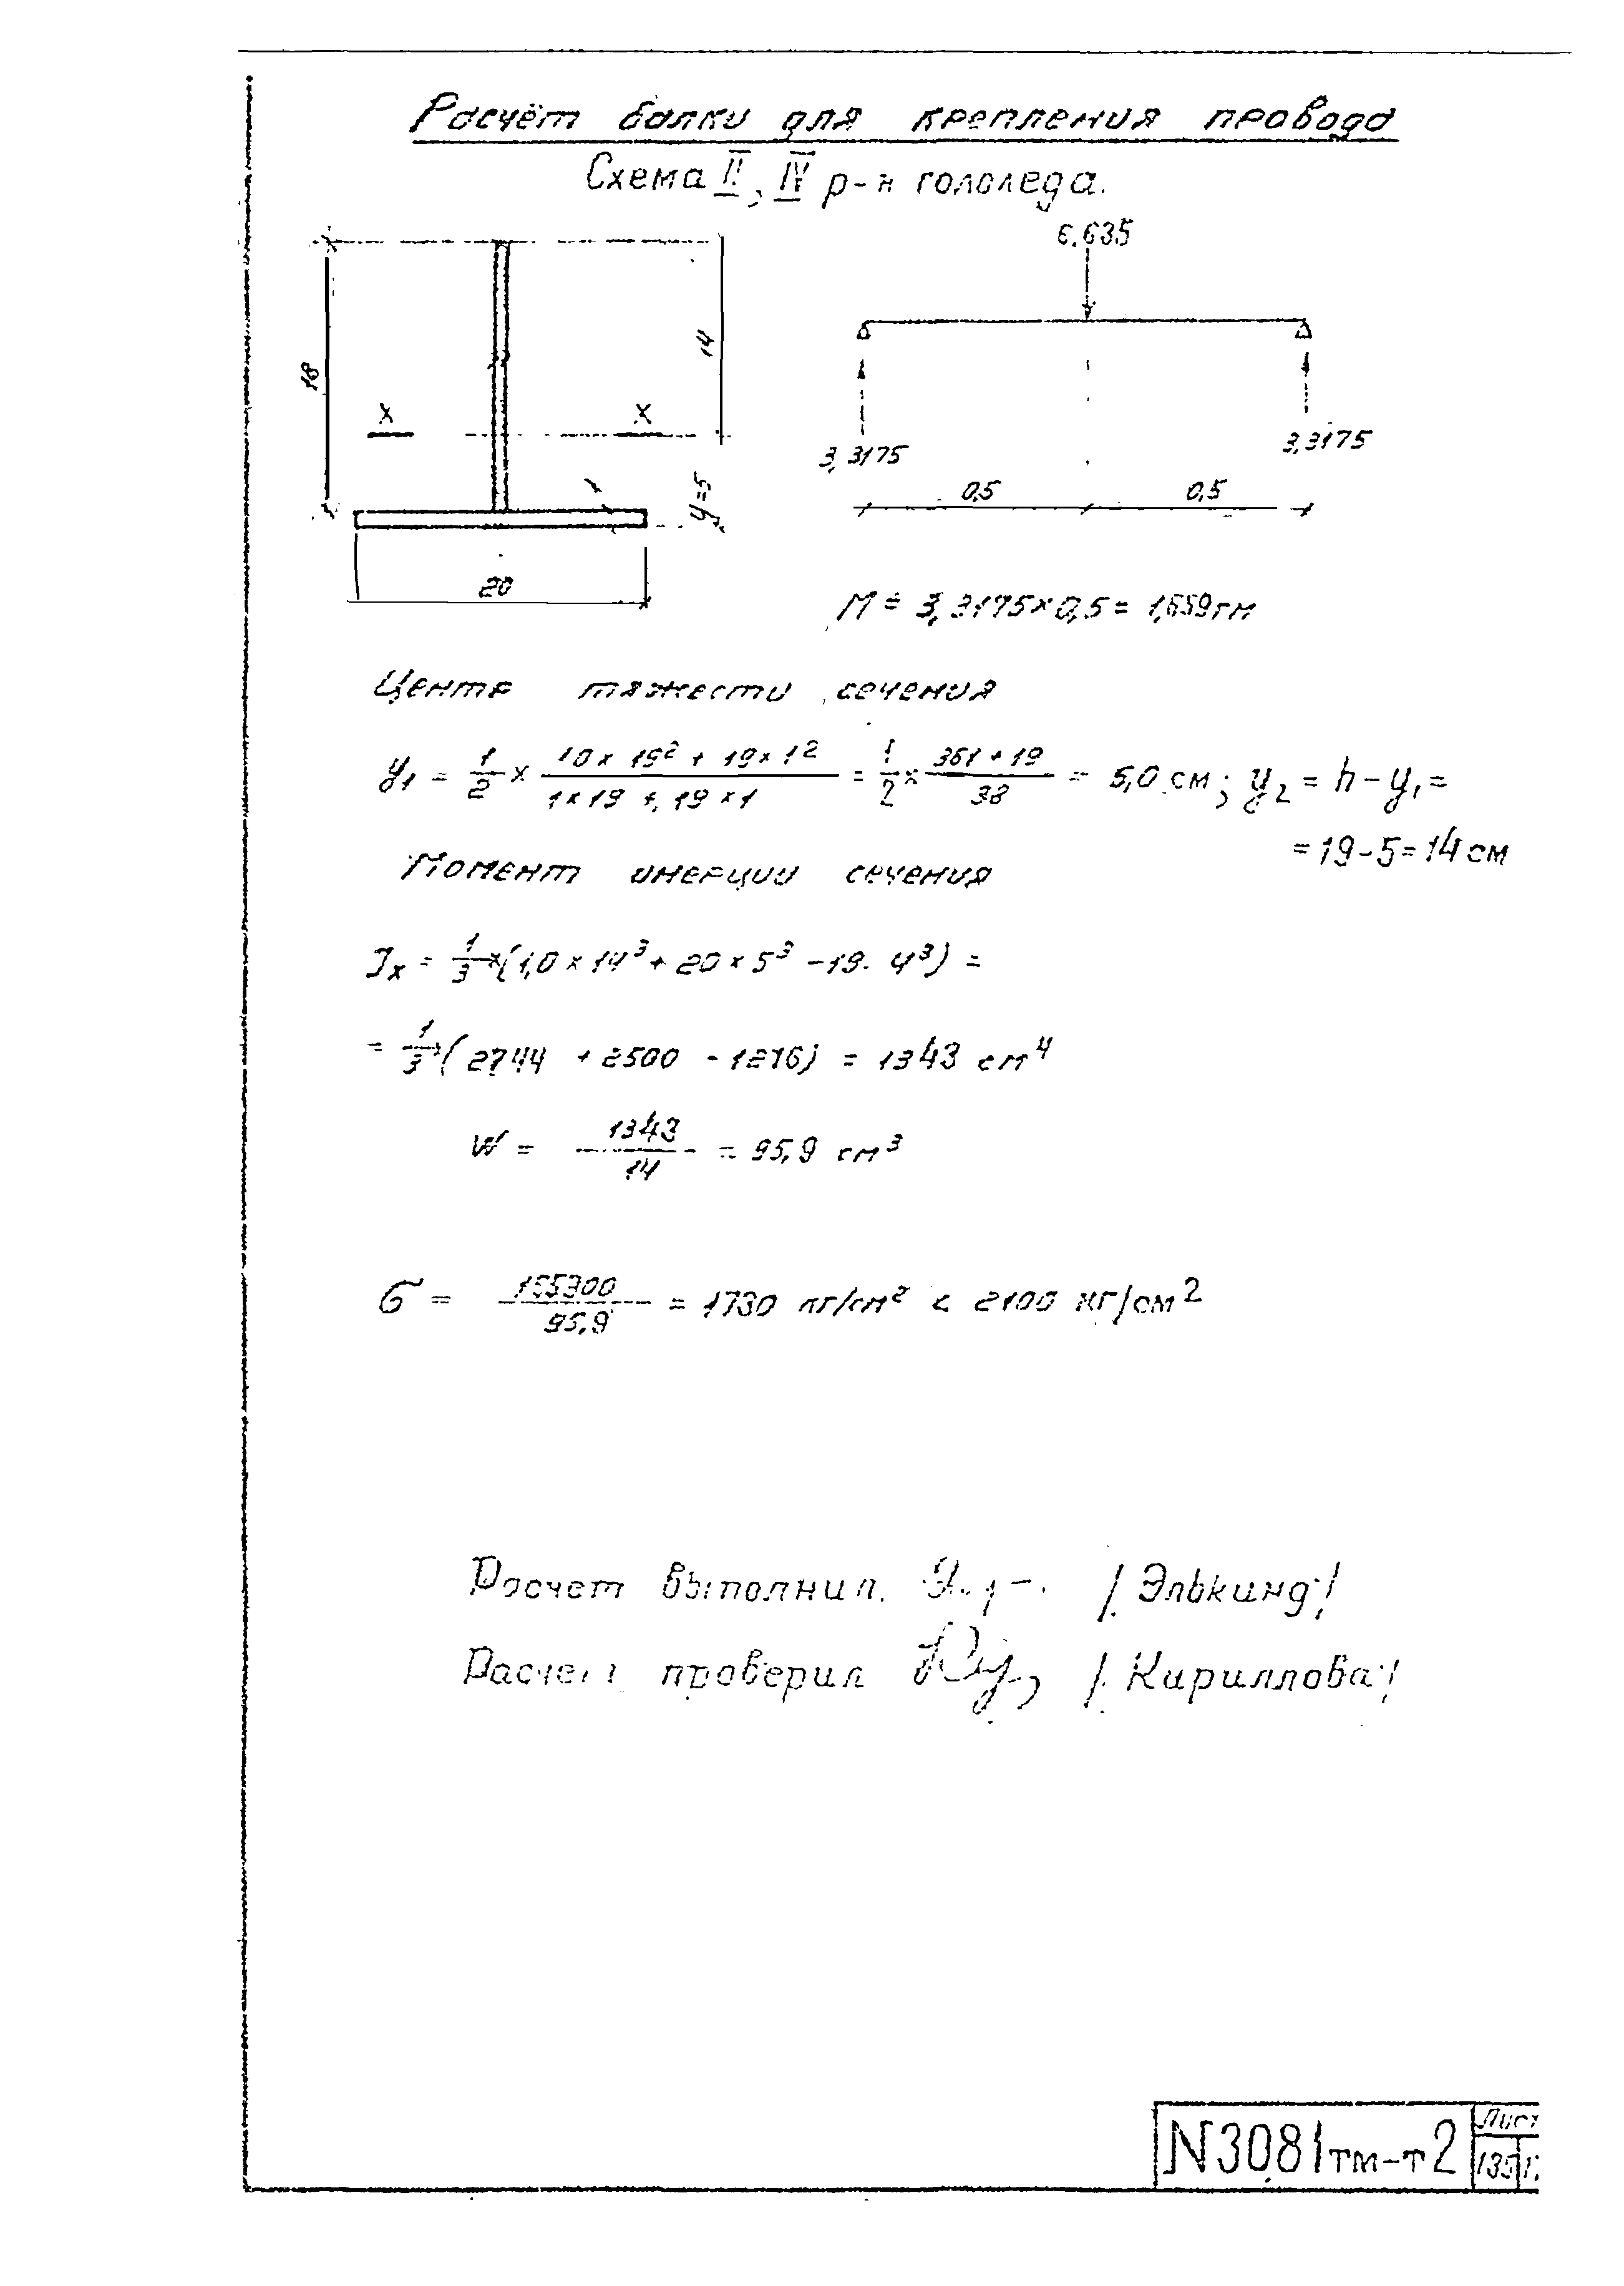 Расчёт балки для крепления провода
Схема II, IV р-н гололеда.
6,635
18
14
X X
y=5
20
3,3175
3,3175
0,5 0,5
M = 3,3175×0,5 = 1,659 тм
Центр тяжести сечения
y₁ = 1/2 × (10 × 19² + 19 × 1²)/(1×19 + 19×1) = 1/2 × (361 + 19)/38 = 5,0 см; y₂ = h – y₁ =
= 19 – 5 = 14 см
Момент инерции сечения
Jx = 1/3 ×(1,0 × 14³ + 20 × 5³ – 19 · 4³) =
= 1/3 (2744 + 2500 - 1216) = 1343 см⁴
W = 1343/14 = 95,9 см³
σ = /95,9 = 1730 кг/см² < 2100 кг/см²
Расчет выполнил. /Элькинд/
Расчет проверил /Кириллова/
N3081тм-т2
Лист